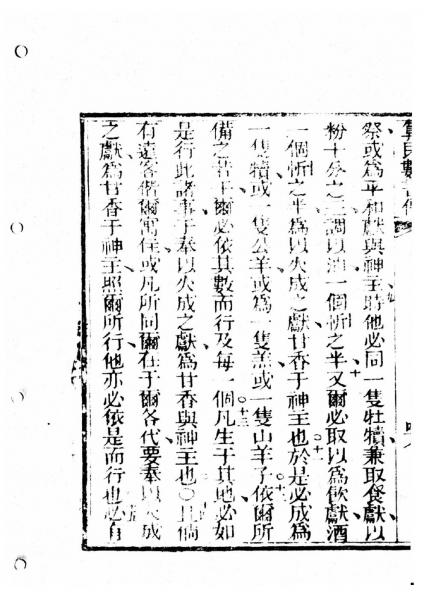 民數
祭或為平和獻與神主時他必同一隻牡犢兼取食獻以
粉十分之三調以油一個忻之半又爾必取以為飲獻酒
一個忻之半為以火成之獻甘香于神主也於是必成為
一隻犢或一隻公羊或為一隻羔或一隻山羊子依爾所
備之若干爾必依其數而行及每一個凡生于其地必如
是行此諸事于奉以火成之獻為甘香與神主也○且倘
有遠客偕爾寓住或凡所同爾在于爾各代要奉以火成
之獻為甘香于神主照爾所行他亦必依是而行也必有